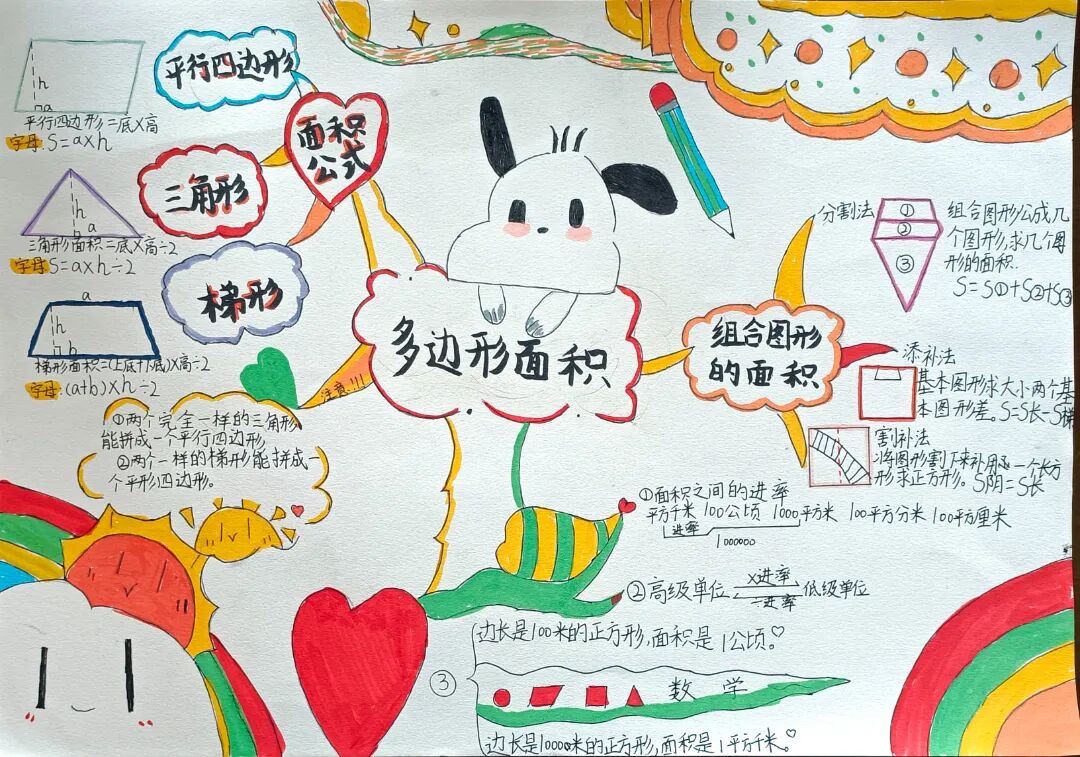 平行四边形
h
a
平行四边形=底×高
字母:S=a×h
面积
公式
三角形
h
a
三角形面积=底×高÷2
字母:S=a×h÷2
梯形
a
h
b
梯形面积=(上底+下底)×高÷2
字母:(a+b)×h÷2
注意:!!!
①两个完全一样的三角形
能拼成一个平行四边形
②两个一样的梯形能拼成一
个平形四边形。
多边形面积
组合图形
的面积
分割法
①
②
③
组合图形公成几
个图形,求几个图
形的面积.
S=S①+S②+S③
添补法
基本图形求大小两个基
本图形差。S=S长-S梯
割补法
将图形割下来补用 一个长方
形求正方形。S阴=S长
①面积之间的进率
平方千米 100公顷 1000平方米 100平方分米 100平方厘米
进率
1000000
②高级单位 ×进率 低级单位
÷进率
③
边长是100米的正方形,面积是1公顷。
数 学
边长是10000米的正方形,面积是1平方千米。